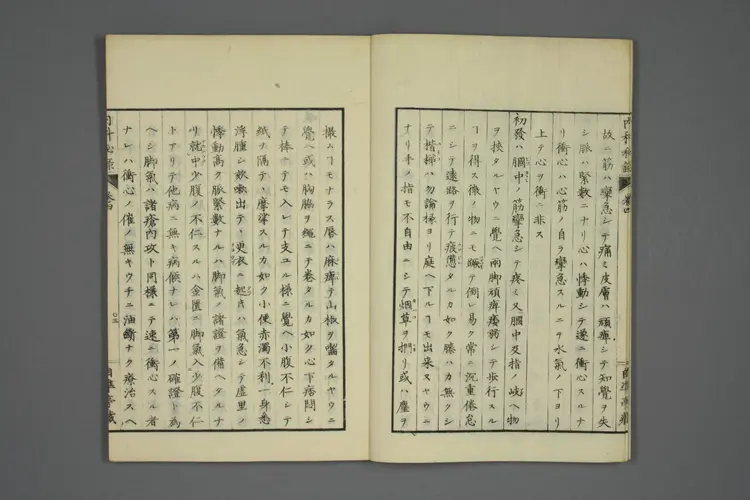 故ニ筋ハ攣急シテ痛ミ皮膚ハ頑痺シテ知覺ヲ失
シ脉ハ緊數ニナリ心ハ悸動シテ遂ニ衝心スルナ
リ衝心ハ心筋ノ自ラ攣急スルニヲ水氣ノ下ヨリ
上テ心ヲ衝ニ非ス
初發ハ膕中ノ筋攣急シテ疼ミ又膕中及指ノ岐ヘ物
ヲ挾タルヤウニ覺ヘ兩脚頑痺痿弱シテ歩行スル
ヿヲ得ス微ノ物ニモ蹶テ倒レ易ク常ニ沉重倦怠
ニシテ遠路ヲ行テ疲憊タルカ如ク膝ハカ無クシ
テ楷梯ハ勿論椽ヨリ庭ヘ下ルヿモ出来ヌヤウニ
ナリ手ノ指モ不自由ニシテ烟草ヲ捫リ或ハ塵ヲ
撮ムヿモナラス唇ハ麻痺テ山椒ヲ囓タルヤウニ
覺ヘ或ハ胸脇ヲ繩ニテ卷タルカ如ク心下痞悶シ
テ棒ニテモ入レテ支ユル樣ニ覺ヘ小腹不仁シテ
紙ヲ隔テヽ摩挲スルカ如ク小便赤濁不利一身悉
浮腫シ欬嗽出テヽ更衣ニ起テハ氣急シテ虚里ノ
悸動高ク脈緊數ナルハ脚氣ノ諸證ヲ備ヘタルナ
リ就中少腹ノ不仁スルハ金匱ニ脚氣入少腹不仁
トアリテ他病ニ無キ病候ナレハ第一ノ確證ト為
ヘシ脚氣ハ諸瘡内攻ト同樣ニテ速ニ衝心スル者
ナレハ衝心ノ催ノ無キウチニ油斷ナク療治スヘ